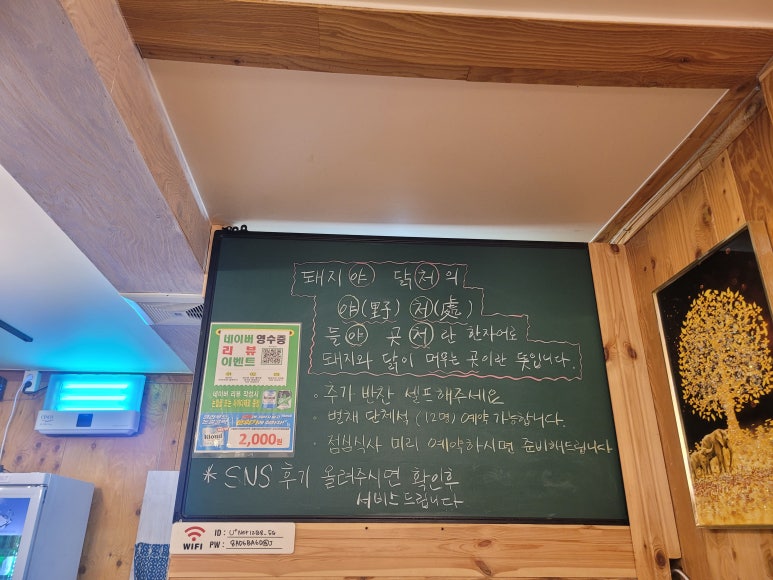 돼지야 닭처의
야(野) 처(處)
들야 곳처란 한자어로
돼지와 닭이 머무는 곳이란 뜻입니다.
· 추가 반찬 셀프해주세요
별채 단체석 (12명) 예약 가능합니다.
· 점심식사 미리 예약하시면 준비해드립니다
* SNS 후기 올려주시면 확인후
서비스 드립니다
네이버 영수증
리뷰
이벤트
네이버 리뷰 작성시
2,000원
WIFI
ID :
PW :